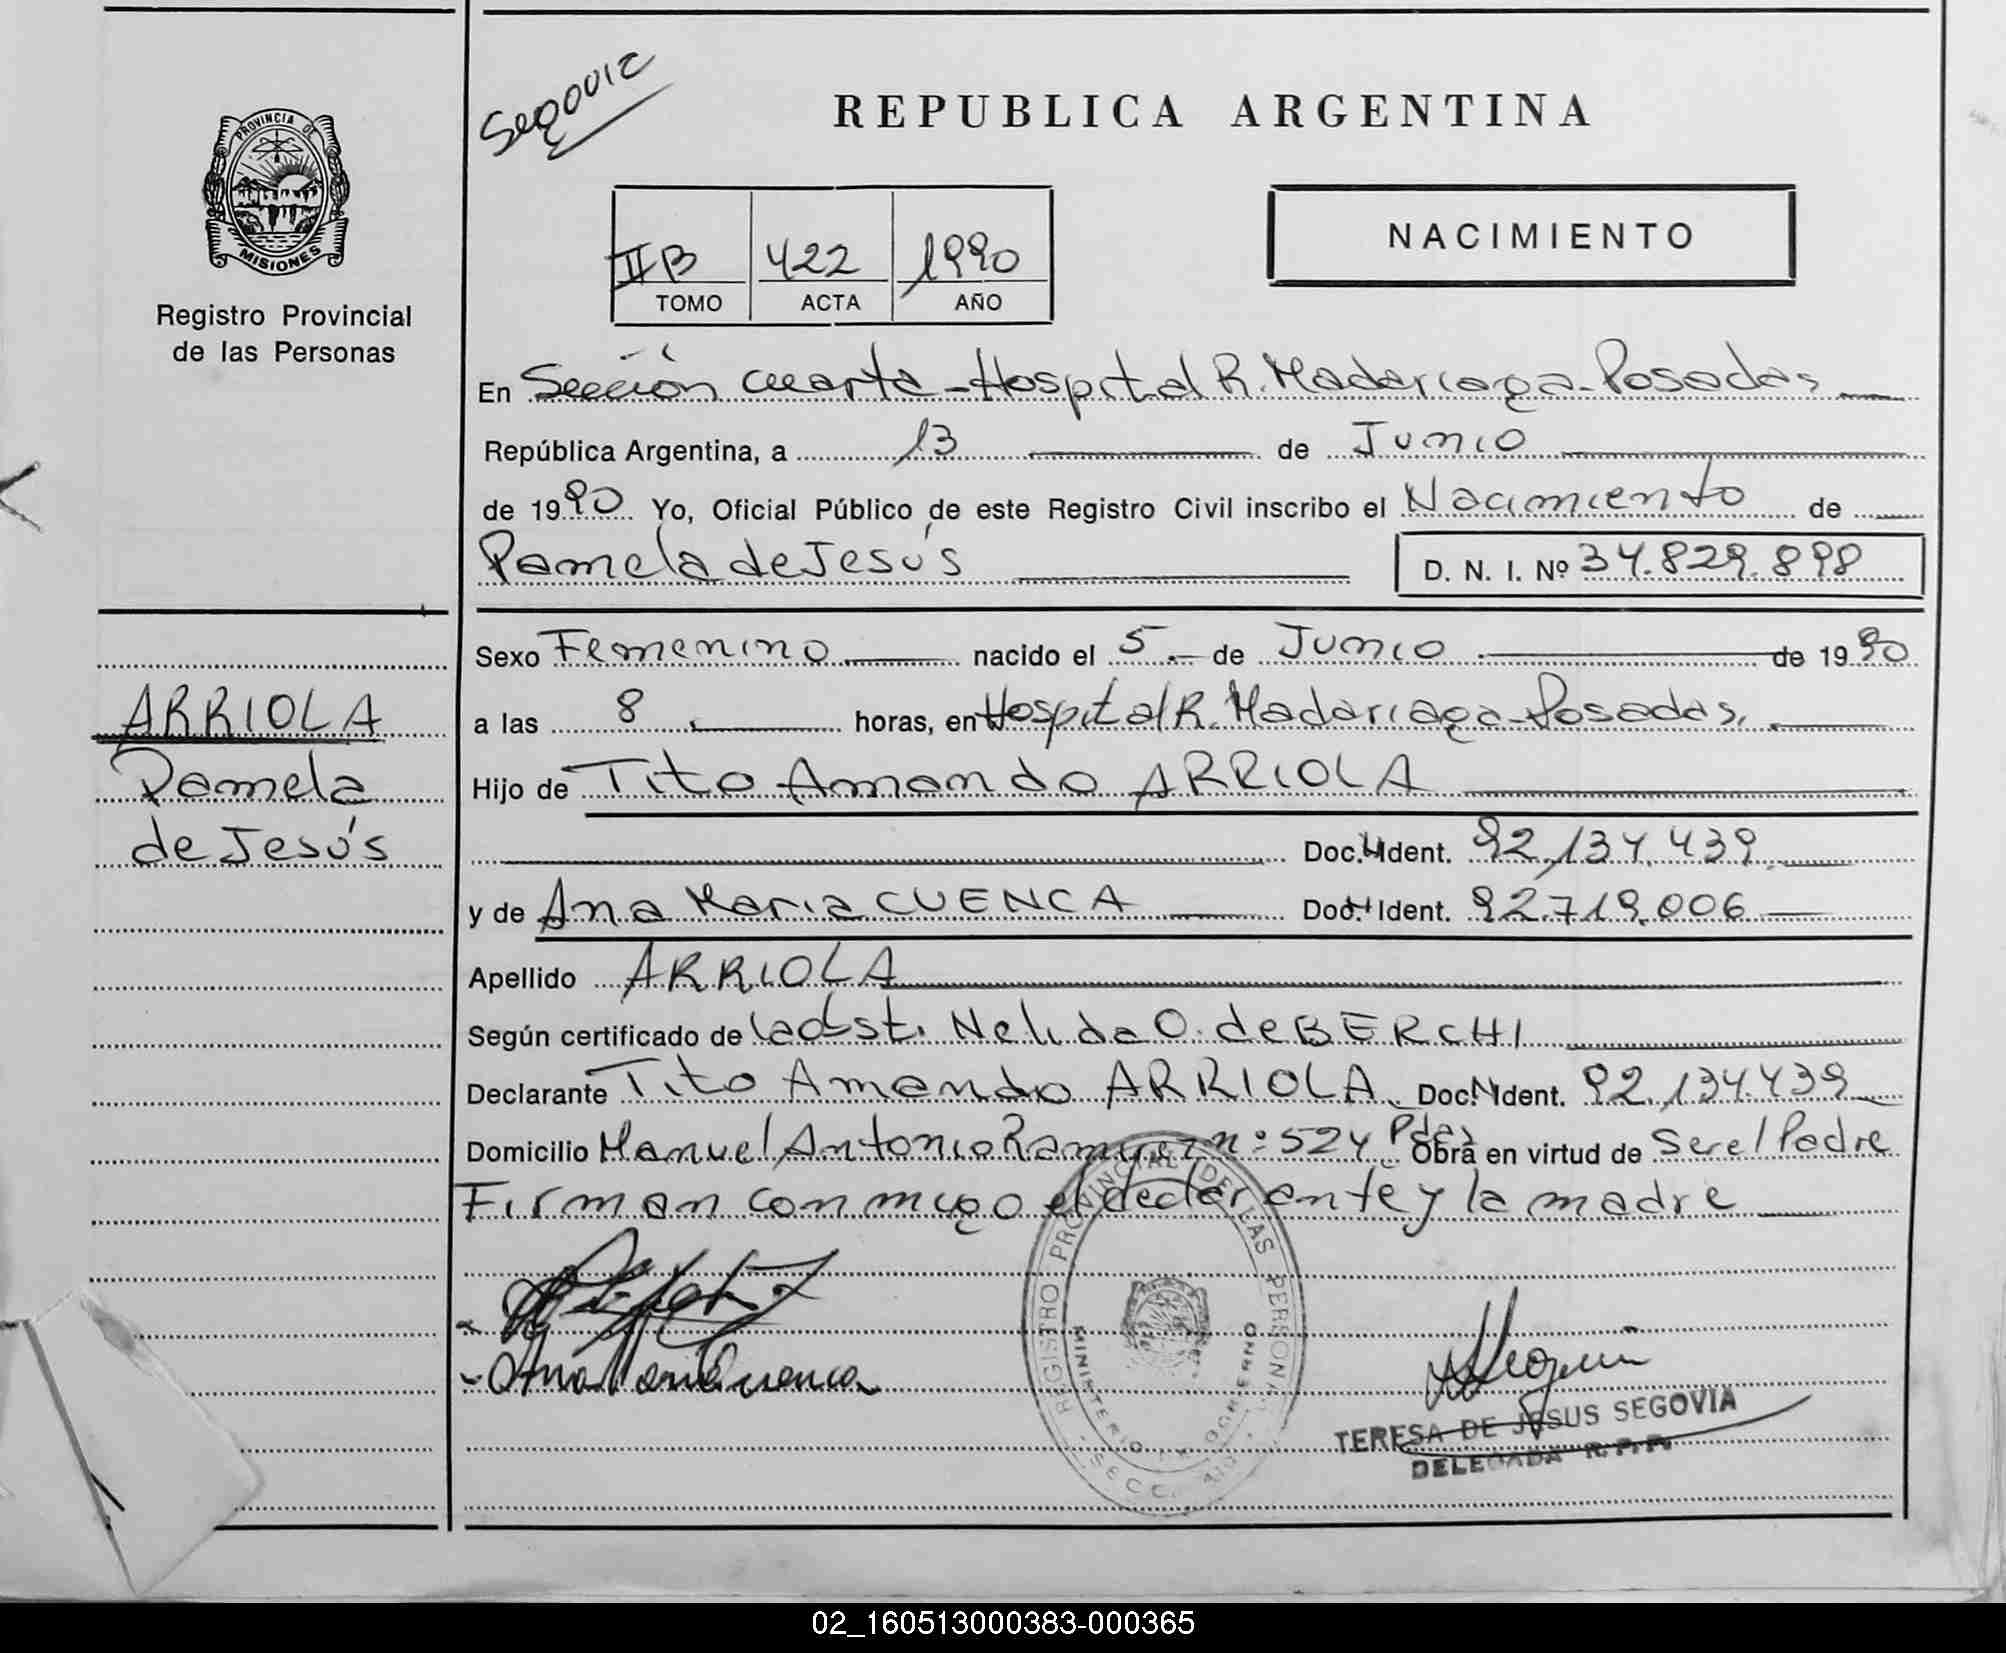 Segovia
REPUBLICA ARGENTINA
PROVINCIA DE
MISIONES
Registro Provincial
de las Personas
II B 422 1990
TOMO ACTA AÑO
NACIMIENTO
En Sección cuarta-Hospital R. Madariaga-Posadas
República Argentina, a 13 de Junio
de 1990 Yo, Oficial Público de este Registro Civil inscribo el Nacimiento de
Pamela de Jesús D. N. I. Nº 34.829.898
Sexo Femenino nacido el 5.- de Junio de 1990
ARRIOLA
Pamela
de Jesús
a las 8 horas, en Hospital R. Madariaga-Posadas.
Hijo de Tito Amando ARRIOLA
Doc. N Ident. 92.134.439
y de Ana Maria CUENCA Doc. N Ident. 92.719.006
Apellido ARRIOLA
Según certificado de la obst. Nelida O. de BERCHI
Declarante Tito Amando ARRIOLA Doc. N Ident. 92.134.439
Domicilio Manuel Antonio Ramirez nº 524 Pdas Obra en virtud de Ser el Padre
Firman conmigo el declarante y la madre
Ana Maria Cuenca
REGISTRO PROVINCIAL DE LAS PERSONAS
MINISTERIO DE GOBIERNO
TERESA DE JESUS SEGOVIA
DELEGADA R.P.P.
02_160513000383-000365